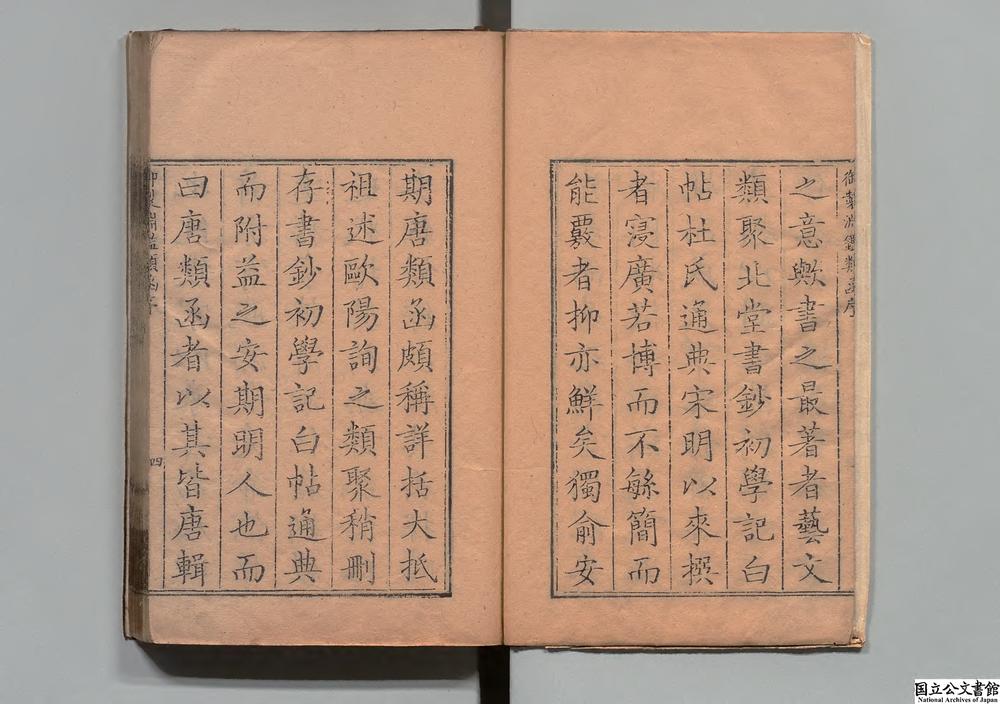 御製淵鑑類函序
之意歟書之最著者藝文
類聚北堂書鈔初學記白
帖杜氏通典宋明以來撰
者寖廣若博而不繇簡而
能覈者抑亦鮮矣獨俞安
期唐類函頗稱詳括大抵
祖述歐陽詢之類聚稍刪
存書鈔初學記白帖通典
而附益之安期明人也而
曰唐類函者以其皆唐輯
御製淵鑑類函序
四
国立公文書館
National Archives of Japan